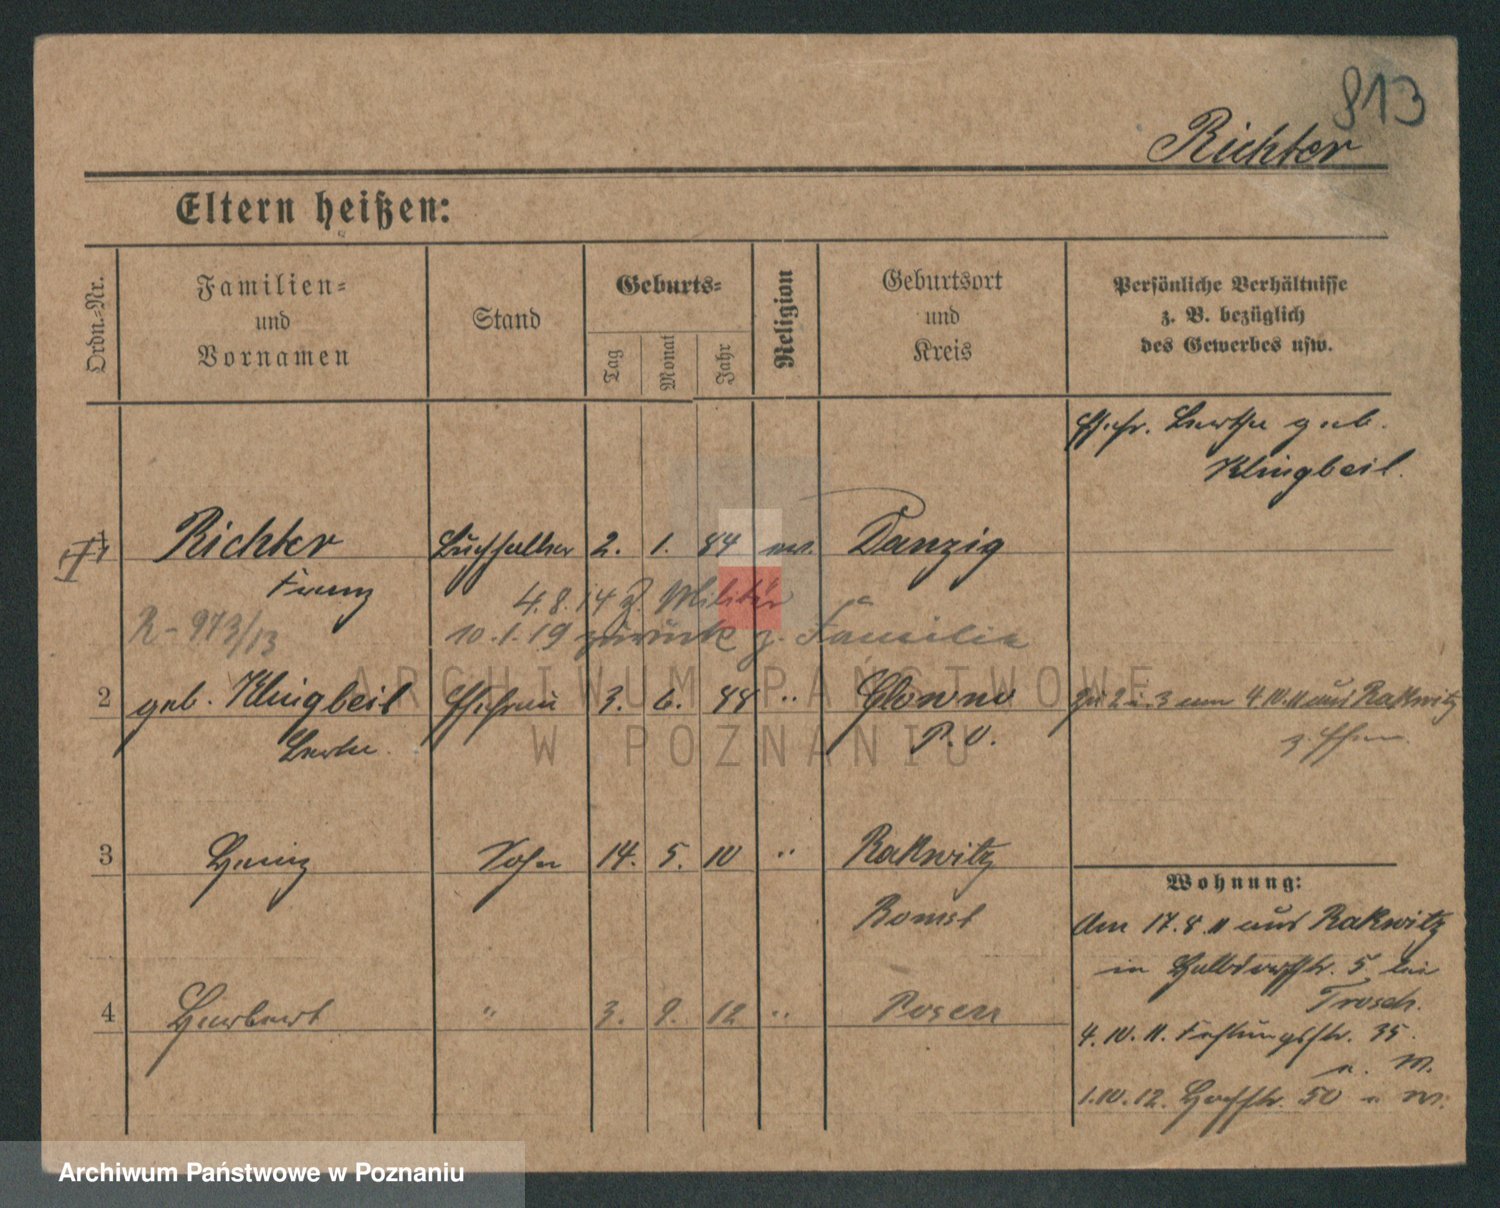 813
Richter
Eltern heißen:
Ordn.-Nr.
Familien-
und
Vornamen
Stand
Geburts-
Tag
Monat
Jahr
Religion
Geburtsort
und
Kreis
Persönliche Verhältnisse
z. B. bezüglich
des Gewerbes usw.
Ehefr. Berthe geb.
Klingbeil.
1 Richter Buchhalter 2. 1. 84 ev. Danzig
Franz
4.8.14 z. Militär
R-973/13
10.1.19 zurück z. Familie
2 geb. Klingbeil Ehefrau 3. 6. 88 " Glowno
P. O.
Zu 2 u. 3 am 4.10.11 aus Rakwitz
z. Ehem.
3 Heinz Sohn 14. 5. 10 " Rakwitz
Bomst
4 Herbert " 3. 9. 12 " Posen
Wohnung:
Am 17.8.11 aus Rakwitz
in Halbdorfstr. 5 bei
Trosch.
4.10.11. Festungsstr. 35.
u. M.
1.10.12. Hochstr. 50 u. M.
ARCHIWUM PAŃSTWOWE
W POZNANIU
Archiwum Państwowe w Poznaniu